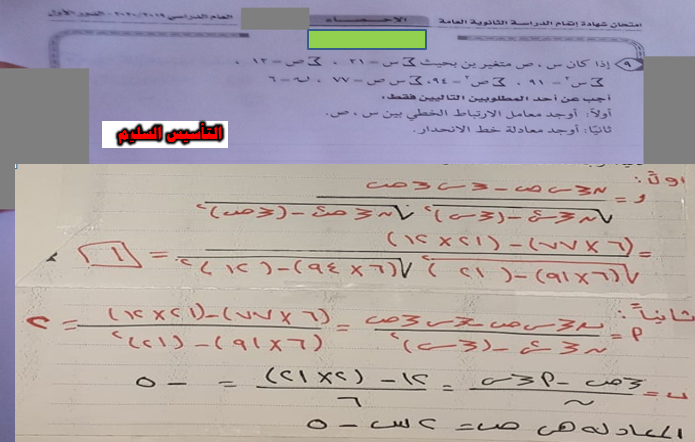 امتحان شهادة إتمام الدراسة الثانوية العامة
الإحصاء
العام الدراسي ٢٠١٩/٢٠٢٠ - الدور الأول
٩) إذا كان س ، ص متغيرين بحيث ∑س = ٢١ ، ∑ص = ١٢ ،
∑س٢ = ٩١ ، ∑ص٢ = ٩٤ ، ∑س ص = ٧٧ ، ن = ٦
أجب عن أحد المطلوبين التاليين فقط:
أولاً: أوجد معامل الارتباط الخطي بين س ، ص.
ثانيًا: أوجد معادلة خط الانحدار.
التأسيس السلوم
أولاً:
ر = ن∑س ص - ∑س∑ص / √ن∑س٢ - (∑س)٢ √ن∑ص٢ - (∑ص)٢
= (٦×٧٧) - (٢١×١٢) / √(٦×٩١) - (٢١)٢ √(٦×٩٤) - (١٢)٢ = ١
ثانياً:
م = ن∑س ص - ∑س∑ص / ن∑س٢ - (∑س)٢ = (٦×٧٧) - (٢١×١٢) / (٦×٩١) - (٢١)٢ = ٢
ب = ∑ص - م∑س / ن = ١٢ - (٢×٢١) / ٦ = -٥
المعادلة هى ص = ٢س - ٥